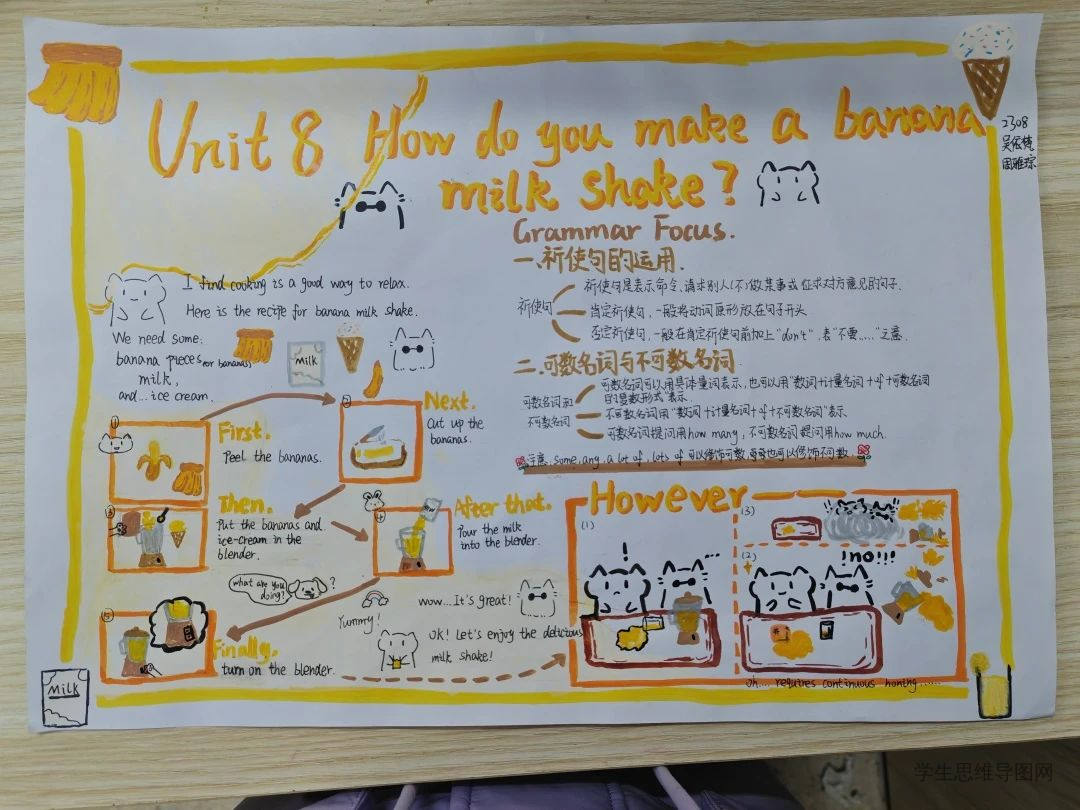 Unit 8 How do you make a banana
milk shake?
2308
Grammar Focus.
一.祈使句的运用.
祈使句
祈使句是表示命令、请求别人(不)做某事或征求对方意见的句子.
肯定祈使句,一般将动词原形放在句子开头
否定祈使句,一般在肯定祈使句前加上"don't".表"不要....."之意.
二.可数名词与不可数名词
可数名词和
不可数名词
可数名词可以用具体量词表示,也可以用"数词+计量名词+of+可数名词
的复数形式"表示.
不可数名词用"数词+计量名词+of+不可数名词"表示
可数名词提问用how many,不可数名词提问用how much.
注意:some,any,a lot of,lots of可以修饰可数,也可以修饰不可数
I find cooking is a good way to relax.
Here is the recipe for banana milk shake.
We need some:
banana pieces(or bananas)
milk,
and...ice cream.
Milk
①
First.
Peel the bananas.
②
Next.
Cut up the
bananas.
③
Then.
Put the bananas and
ice-cream in the
blender.
④
After that.
Pour the milk
into the blender.
what are you
doing?
?
⑤
Finally.
turn on the blender.
Yummy!
wow...It's great!
OK! Let's enjoy the delicious
milk shake!
However
(1)
!
...
(3)
(2)
!no!!!
oh.... requires continuous
MILK
学生思维导图网